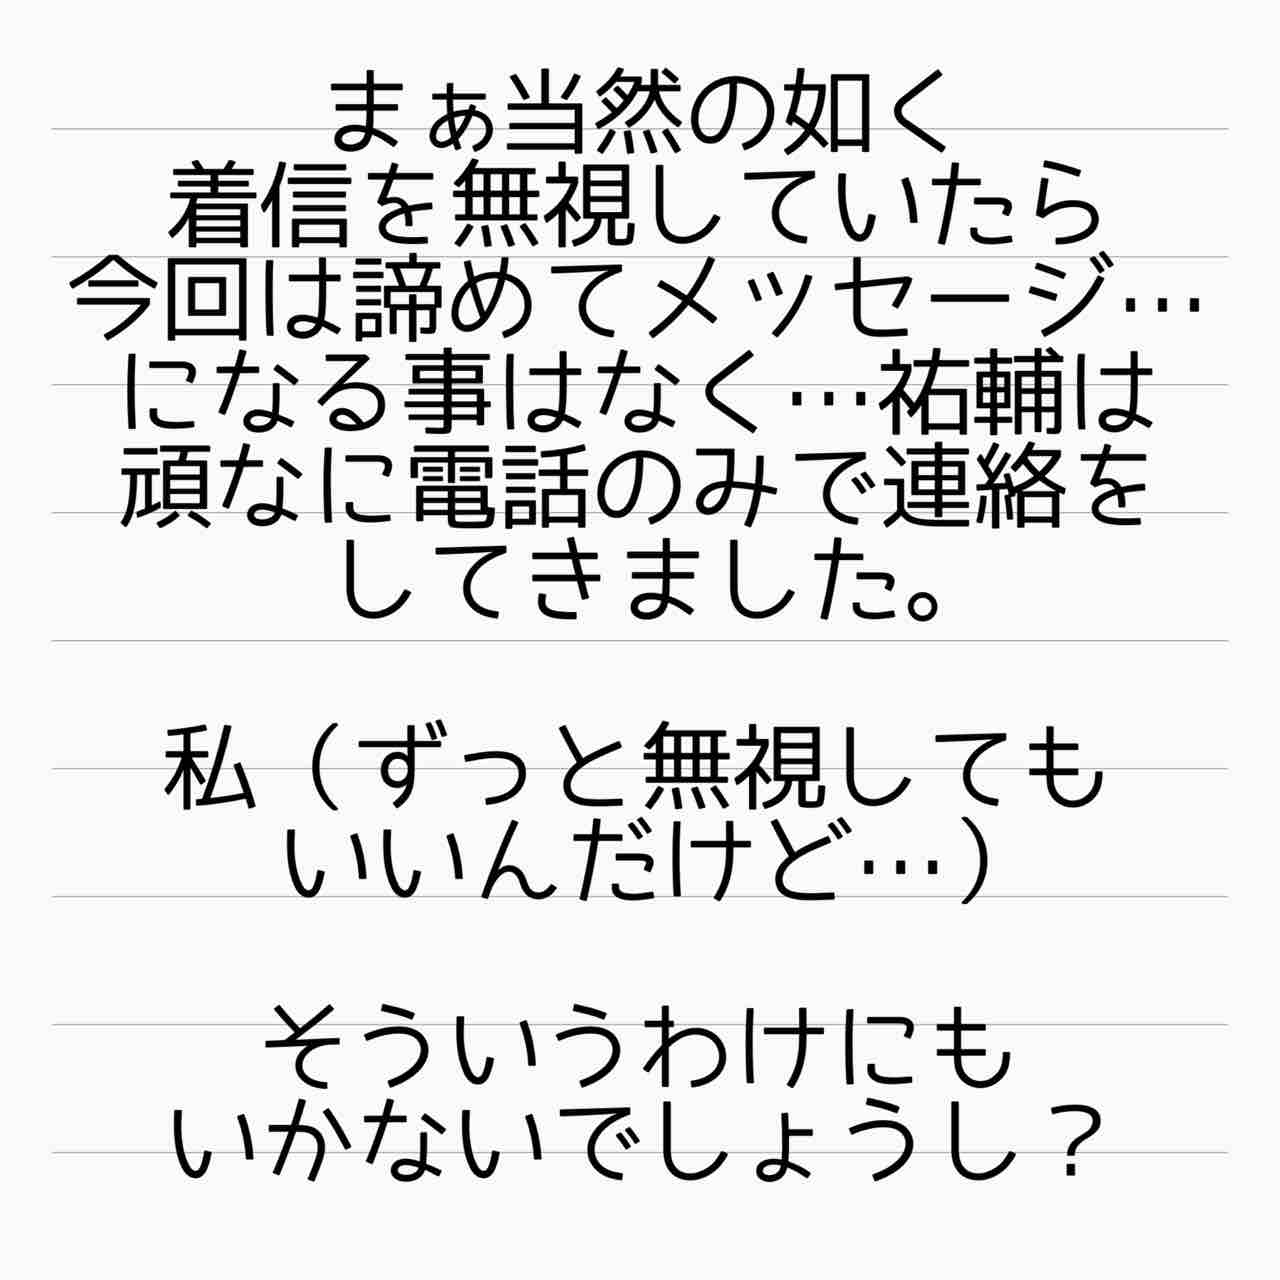 まぁ当然の如く
着信を無視していたら
今回は諦めてメッセージ…
になる事はなく…祐輔は
頑なに電話のみで連絡を
してきました。
私（ずっと無視しても
いいんだけど…）
そういうわけにも
いかないでしょうし？